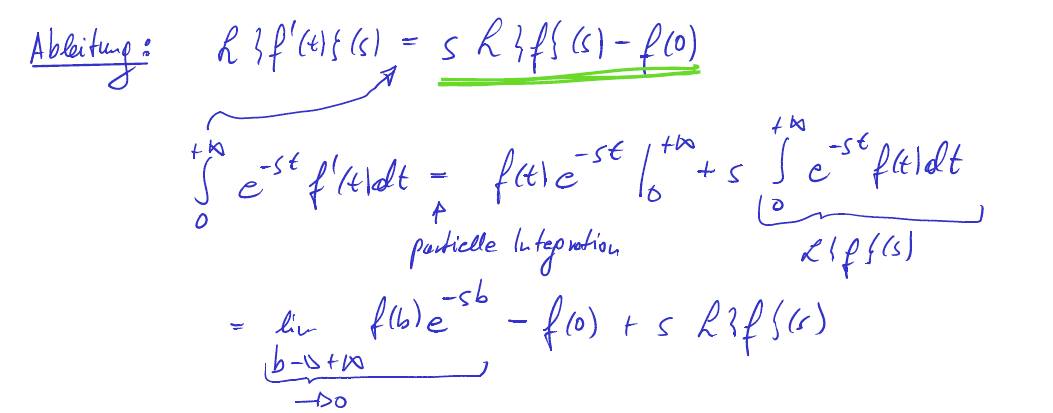 Ableitung: ℒ{f'(t)}(s) = s ℒ{f}(s) − f(0)
∫₀^{+∞} e^{-st} f'(t)dt = f(t)e^{-st} |₀^{+∞} + s ∫₀^{+∞} e^{-st} f(t)dt
partielle Integration ℒ{f}(s)
= lim_{b→+∞} f(b)e^{-sb} − f(0) + s ℒ{f}(s)
→0